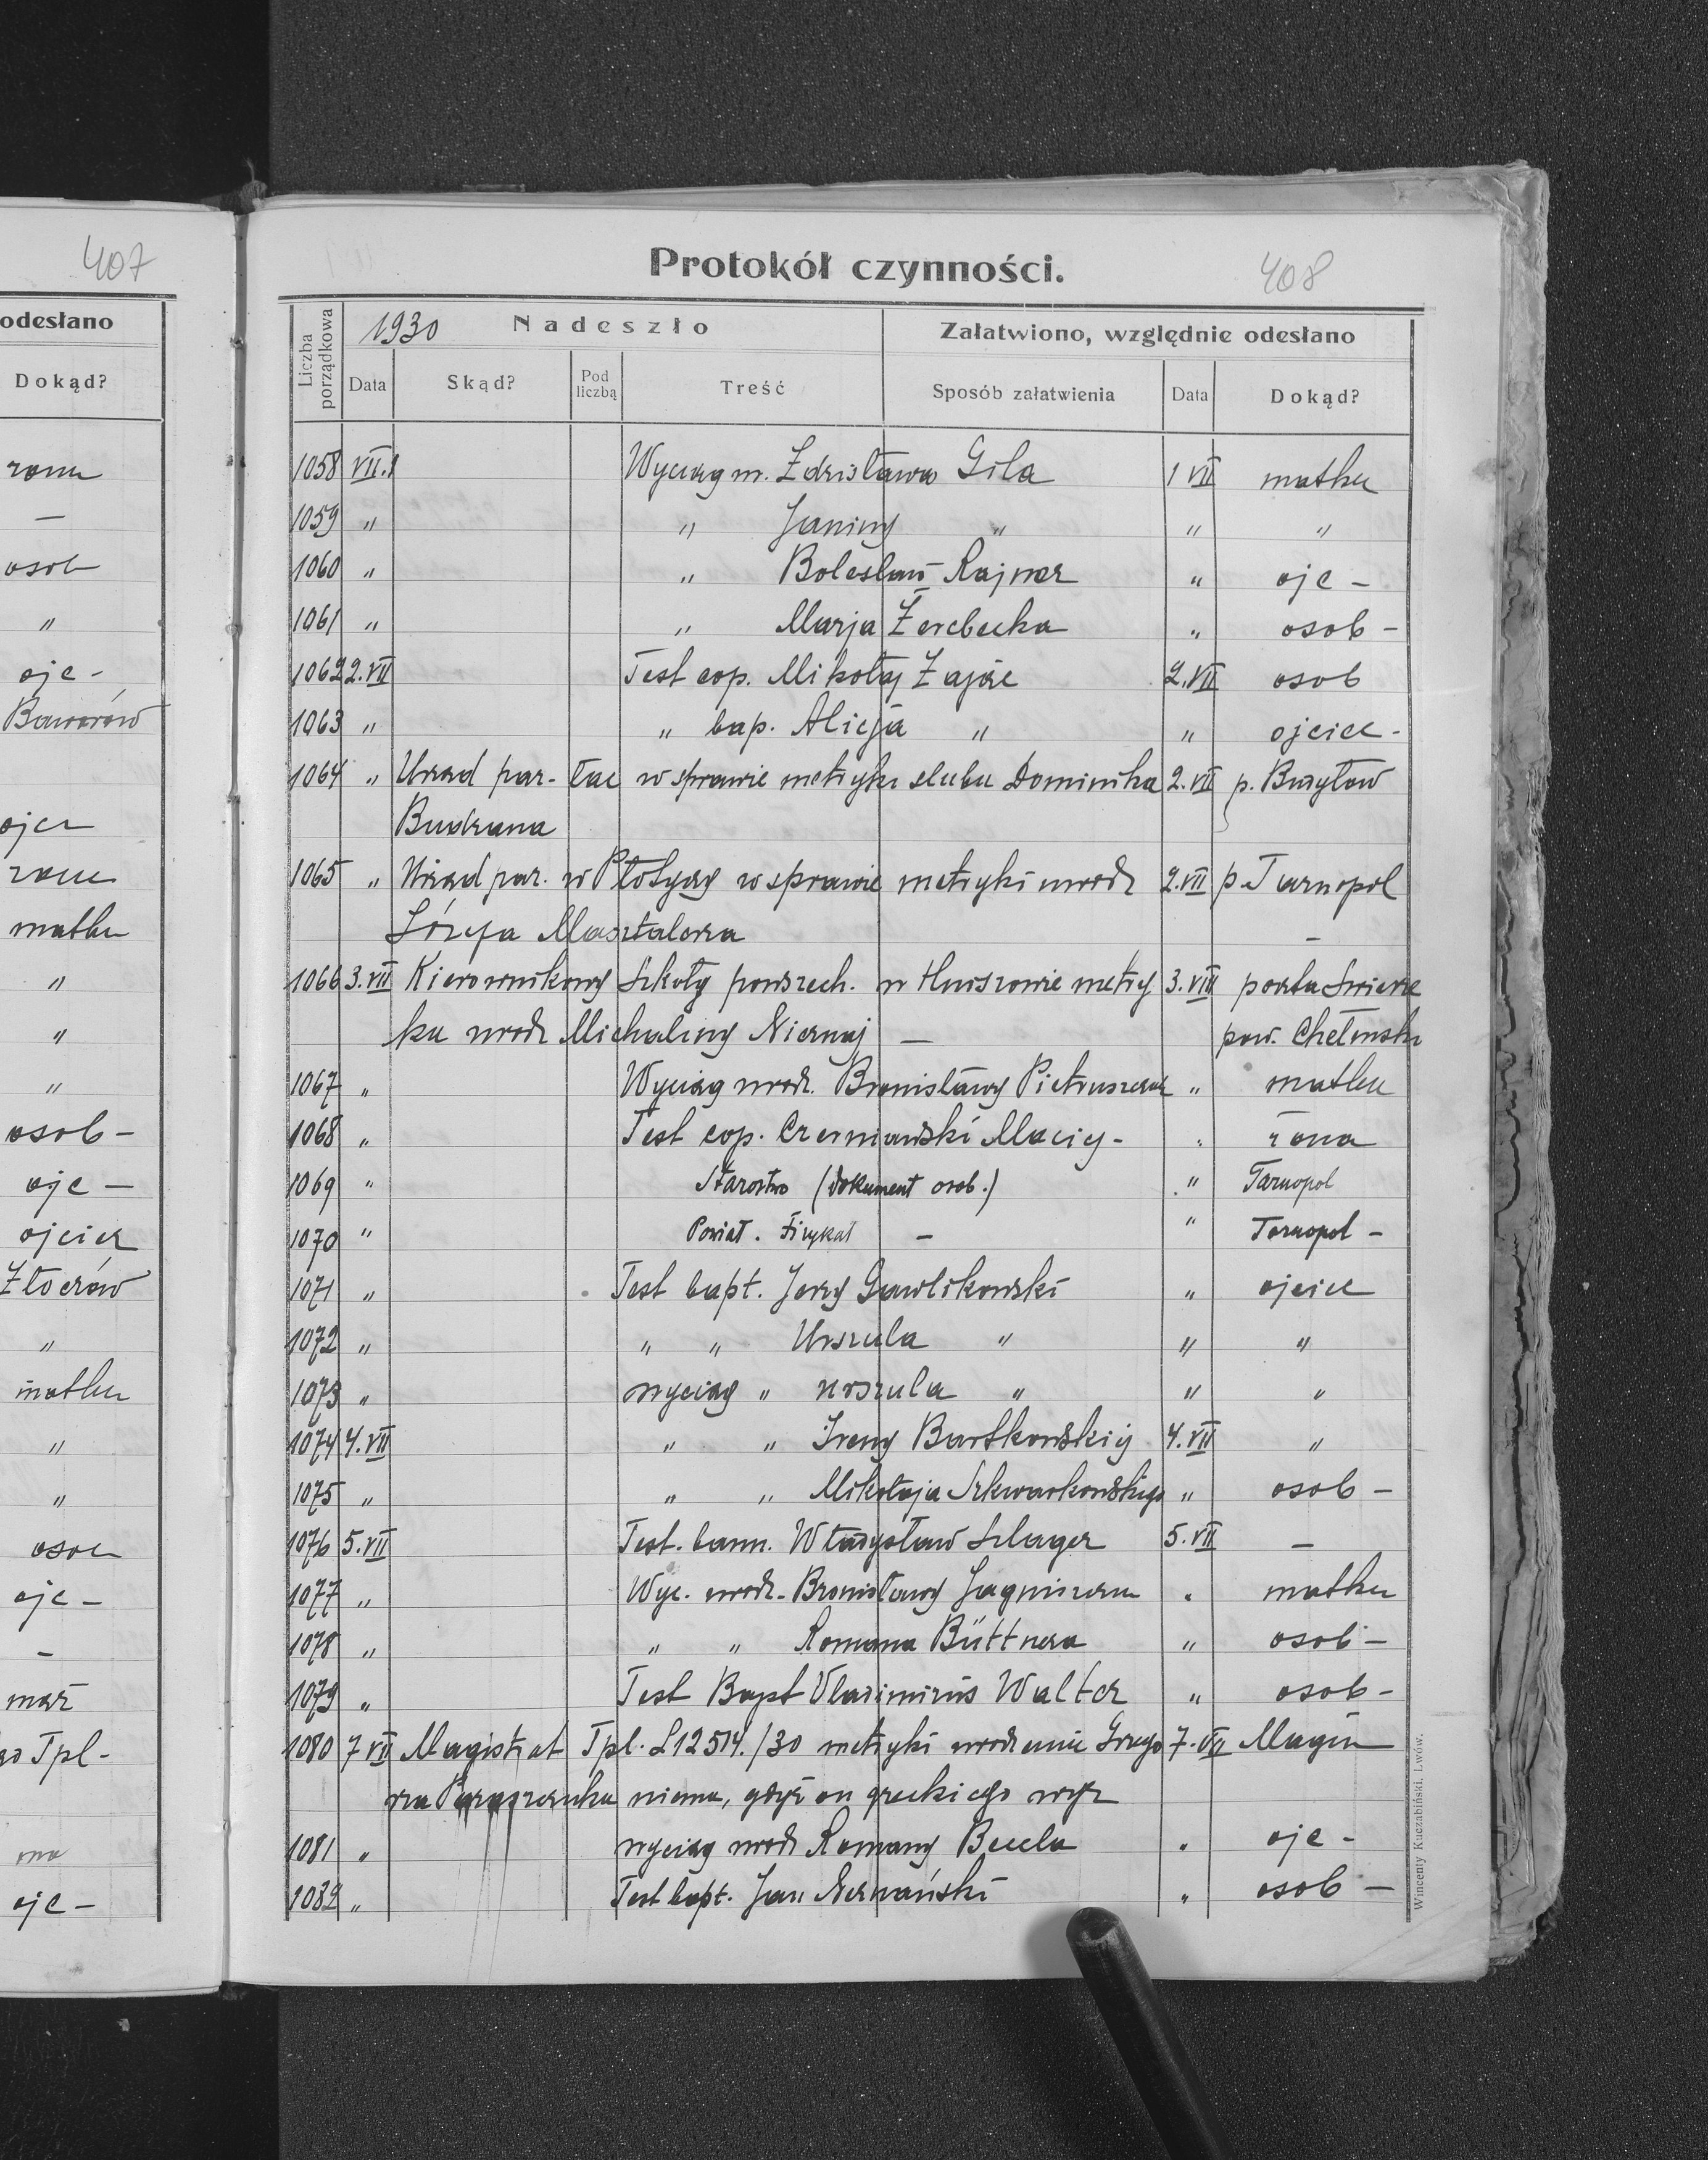 407
odesłano
Dokąd?
—
osob
"
ojc -
Baworów
ojca
matka
"
"
"
osob -
ojc —
ojciec
Złoczów
"
matka
"
"
osob
ojc -
—
mąż
Tpl -
ojc -
Protokół czynności.
408
Liczba porządkowa
1930 Nadeszło
Załatwiono, względnie odesłano
Data Skąd? Pod liczbą Treść Sposób załatwienia Data Dokąd?
1058 VII.1 Wyciąg m. Zdzisława Gila 1 VII matka
1059 " " Janiny " " "
1060 " " Bolesław Rajner " ojc -
1061 " " Marja Żerebecka " osob -
1062 2.VII Test cop. Mikołaj Zając 2.VII osob
1063 " " bap. Alicja " " ojciec -
1064 " Urząd par. łac w sprawie metryki ślubu Dominika 2.VII p. Buzyłow
1065 " Urząd par. w Płotyczy w sprawie metryki urodz 2.VII p. Tarnopol
Józefa Masztalerza —
1066 3.VII Kierownikowi Szkoły powszech. w metry 3.VII poczta Świerże
ka urodz Michaliny Niernaj — pow. Chełmski
1067 " Wyciąg urodz. Bronisławy " matka
1068 " Test cop. Czerniawski Maciej - " żona
1069 " Starostwo (dokument osob.) " Tarnopol
1070 " Powiat. Fizykat — " Tarnopol -
1071 " Test bapt. Jerzy Gawlikowski " ojciec
1072 " " " Urszula " " "
1073 " wyciąg " Urszula " " "
1074 4.VII " " Ireny Bartkowskiej 4.VII "
1075 " " " Mikołaja Szkwarkowskiego " osob -
1076 5.VII Test. bann. Władysław Szlager 5.VII —
1077 " Wyc. urodz. Bronisławy " matka
1078 " " " Romana Büttnera " osob -
1079 " Test Bapt Vladimirus Walter " osob -
1080 7 VII Magistrat Tpl. L 12514./30 metryki urodzenia Grzego 7.VII Magis
rza niema, gdyż on greckiego wyz
1081 " wyciąg urodz Romany " ojc -
1082 " Test bapt. Jan " osob —
Wincenty Kuczabiński, Lwów.